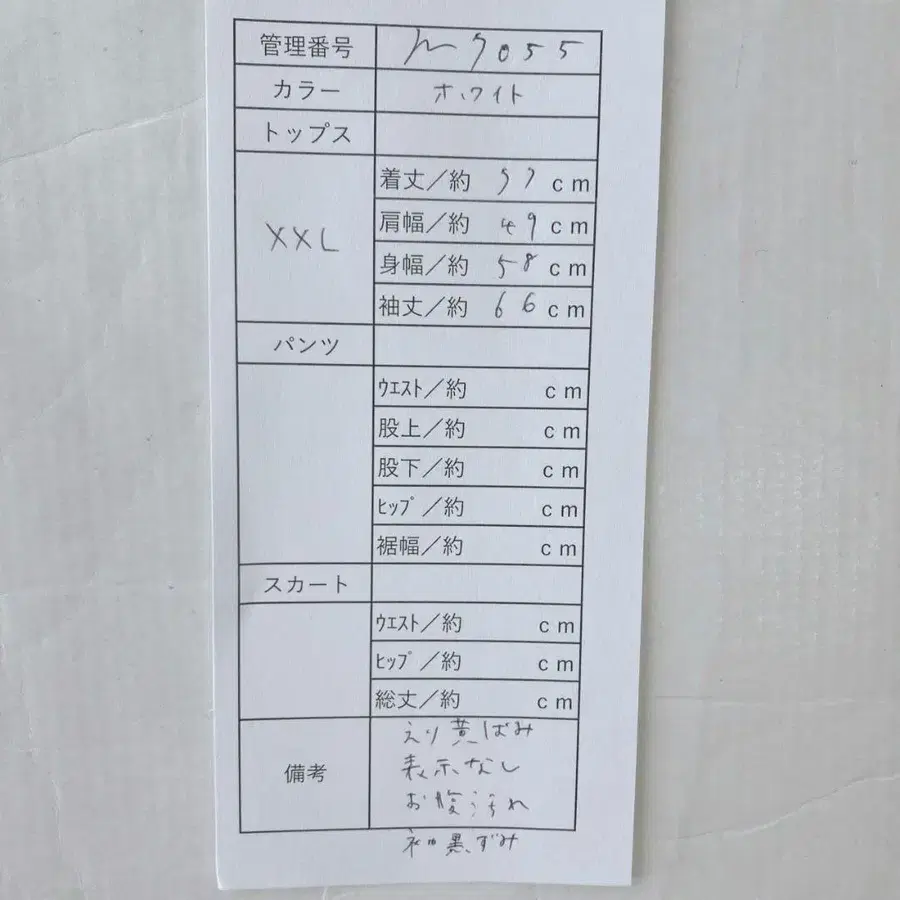 管理番号 m9055
カラー ホワイト
トップス
XXL
着丈／約 cm
肩幅／約 49 cm
身幅／約 58 cm
袖丈／約 66 cm
パンツ
ｳｴｽﾄ／約 cm
股上／約 cm
股下／約 cm
ﾋｯﾌﾟ／約 cm
裾幅／約 cm
スカート
ｳｴｽﾄ／約 cm
ﾋｯﾌﾟ／約 cm
総丈／約 cm
備考
えり黄ばみ
表示なし
お腹汚れ
袖黒ずみ